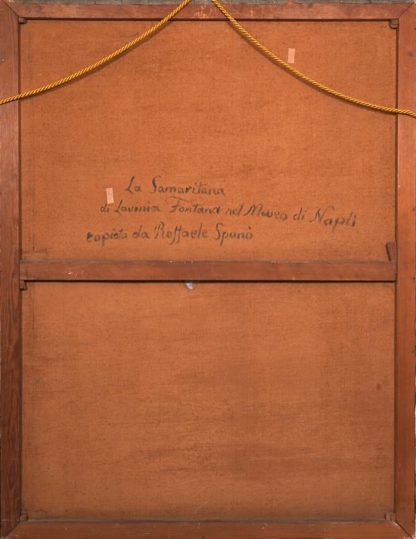 La Samaritana
di Lavinia Fontana nel Museo di Napoli
copiata da Raffaele Spanò